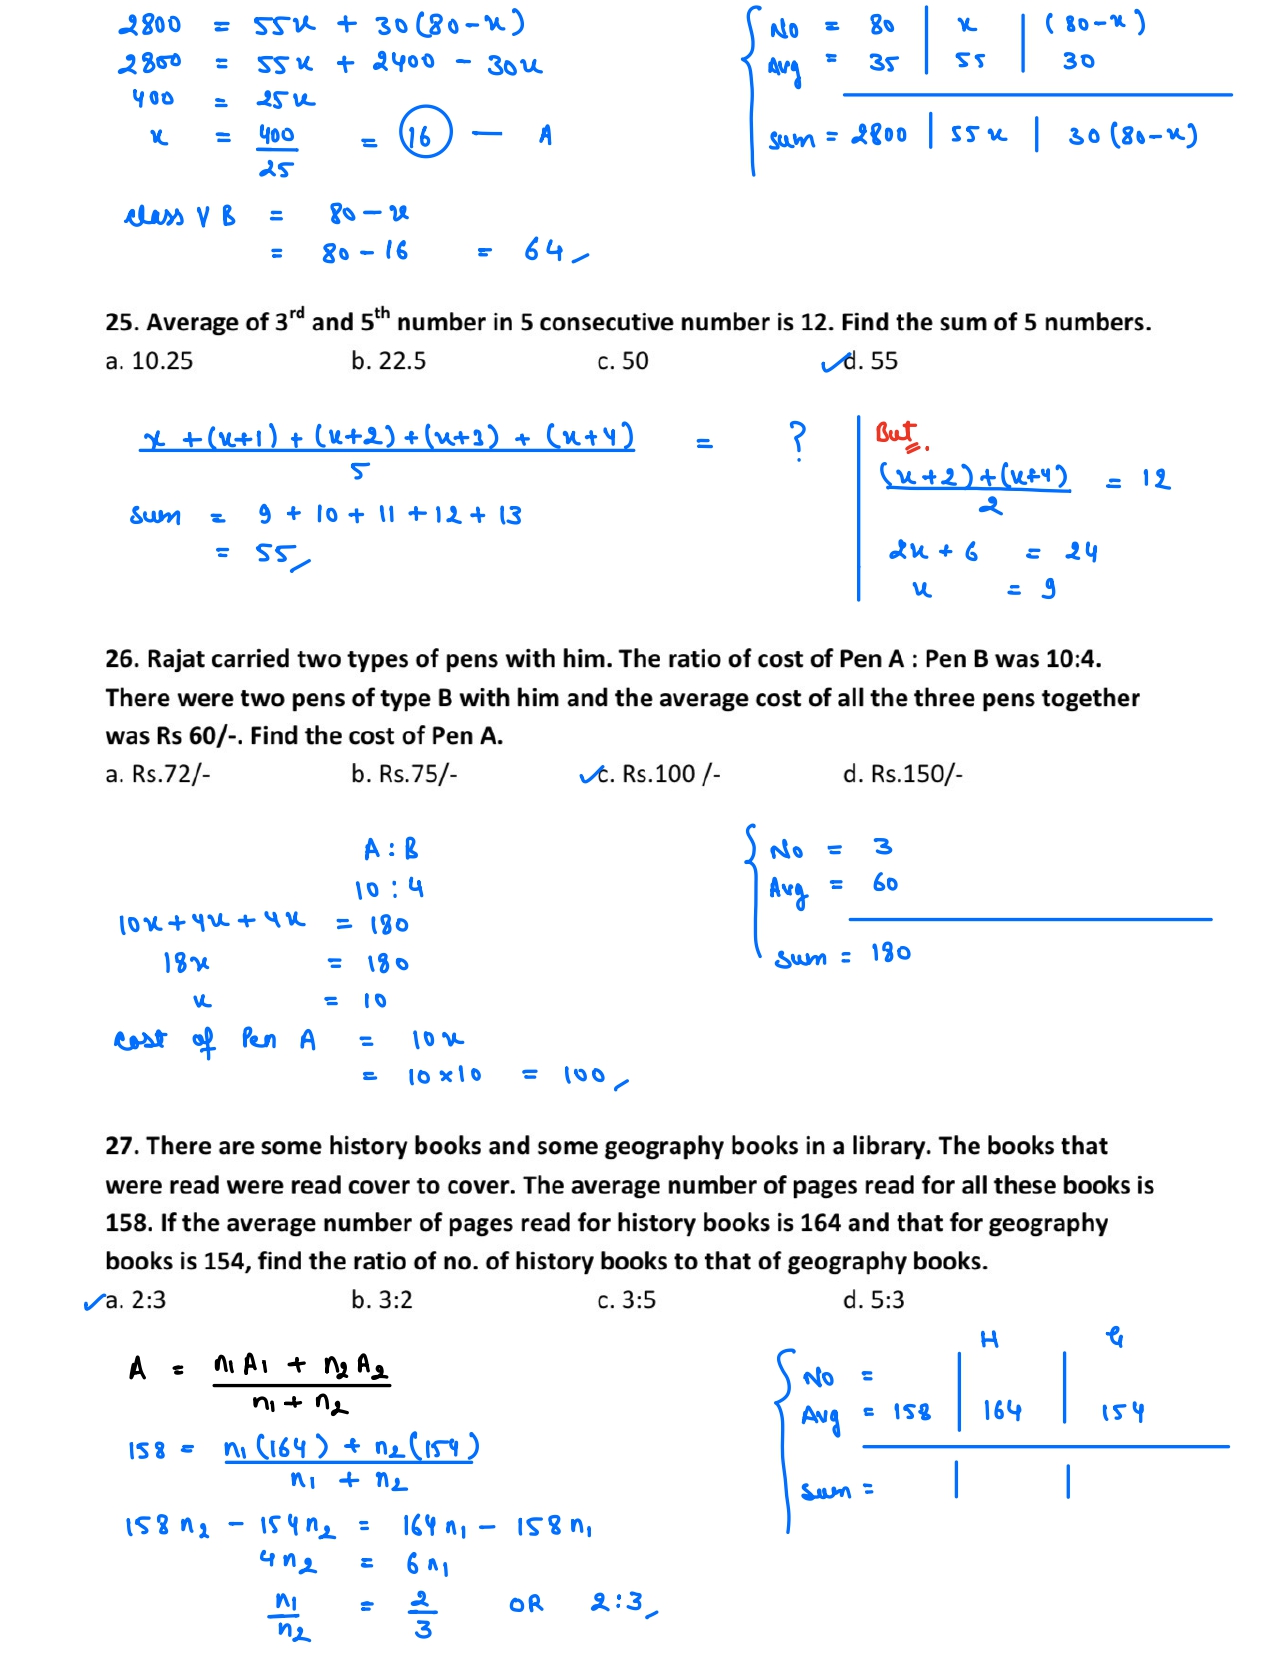 2800 = 55x + 30(80-x)
2800 = 55x + 2400 - 30x
400 = 25x
x = 400/25 = 16 — A
class V B = 80-x
= 80-16 = 64
No = 80 | x | (80-x)
Avg = 35 | 55 | 30
Sum = 2800 | 55x | 30(80-x)
25. Average of 3rd and 5th number in 5 consecutive number is 12. Find the sum of 5 numbers.
a. 10.25 b. 22.5 c. 50 d. 55
x+(x+1)+(x+2)+(x+3)+(x+4) = ?
5
Sum = 9+10+11+12+13
= 55
But
(x+2)+(x+4) = 12
2
2x+6 = 24
x = 9
26. Rajat carried two types of pens with him. The ratio of cost of Pen A : Pen B was 10:4.
There were two pens of type B with him and the average cost of all the three pens together
was Rs 60/-. Find the cost of Pen A.
a. Rs.72/- b. Rs.75/- c. Rs.100 /- d. Rs.150/-
A : B
10 : 4
10x+4x+4x = 180
18x = 180
x = 10
cost of Pen A = 10x
= 10×10 = 100
No = 3
Avg = 60
Sum = 180
27. There are some history books and some geography books in a library. The books that
were read were read cover to cover. The average number of pages read for all these books is
158. If the average number of pages read for history books is 164 and that for geography
books is 154, find the ratio of no. of history books to that of geography books.
a. 2:3 b. 3:2 c. 3:5 d. 5:3
A = n₁A₁ + n₂A₂
n₁ + n₂
158 = n₁(164) + n₂(154)
n₁ + n₂
158n₂ - 154n₂ = 164n₁ - 158n₁
4n₂ = 6n₁
n₁/n₂ = 2/3 OR 2:3
H G
No = | |
Avg = 158 | 164 | 154
Sum = | |